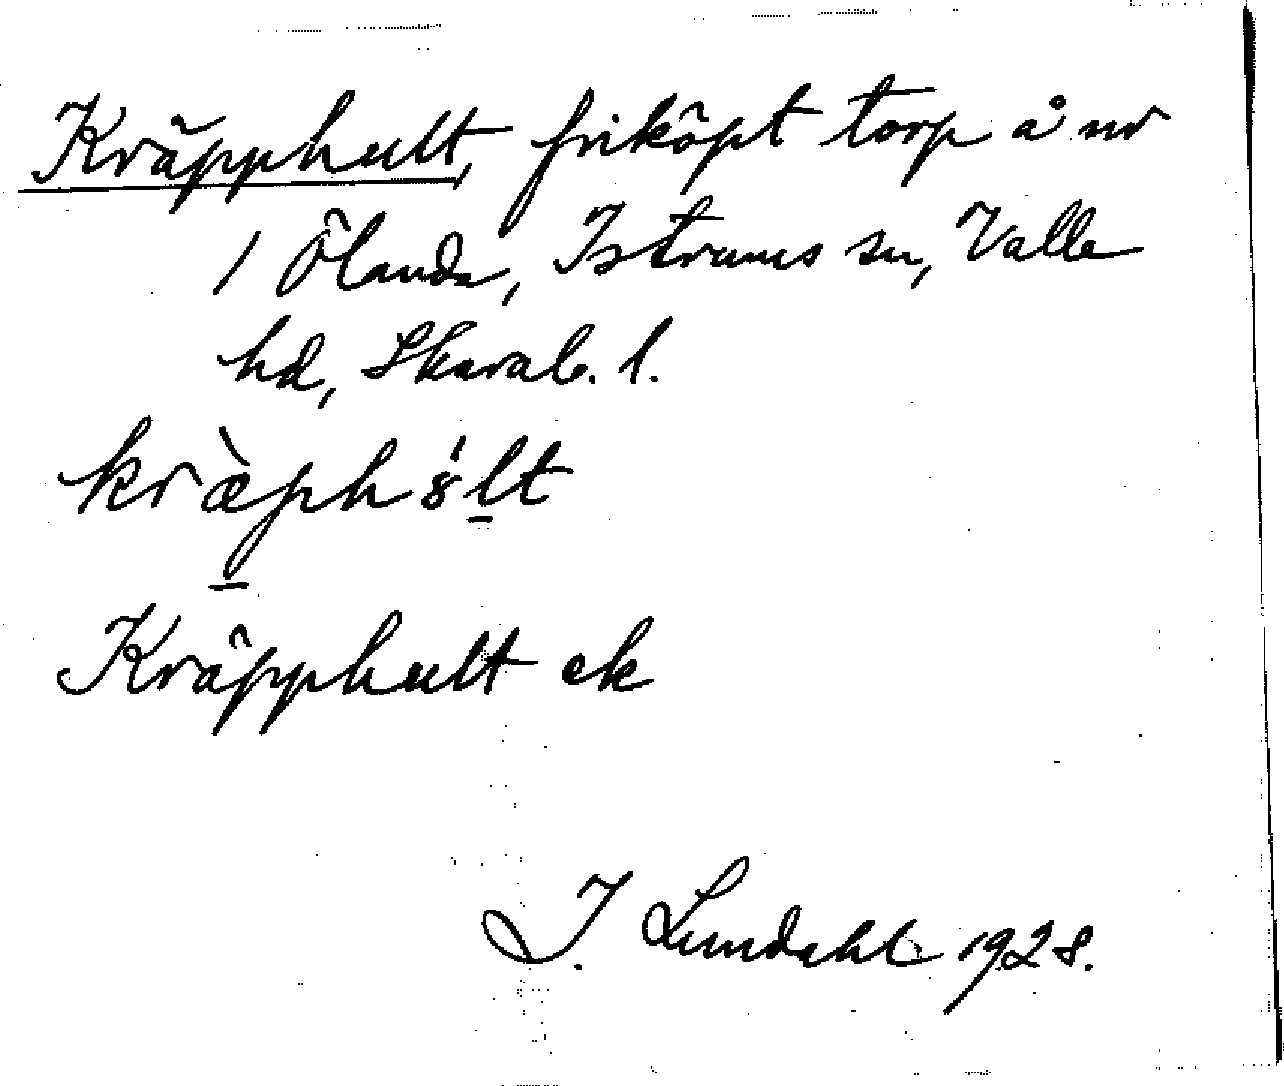 Kräpphult, friköpt torp å nr
1 Ölanda, Istrums sn, Valle
hd, Skarab. l.
kræ̀phꞌ8lt
Kräpphult ek
I. Lundahl 1928.